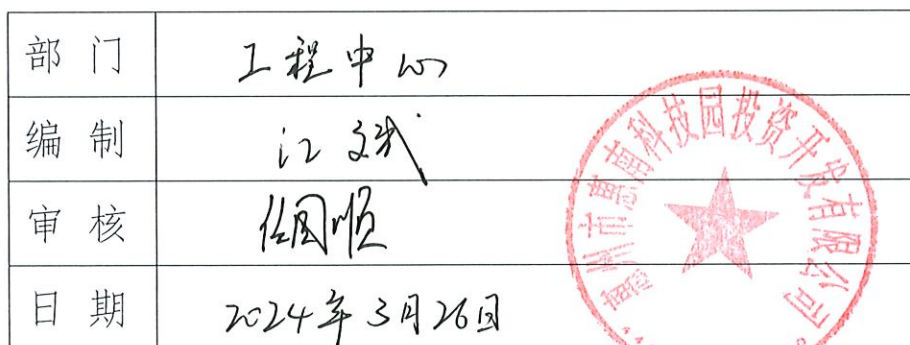 部门 工程中心
编制 江斌
审核 伍国顺
日期 2024年3月26日
惠州市惠南科技园投资开发有限公司